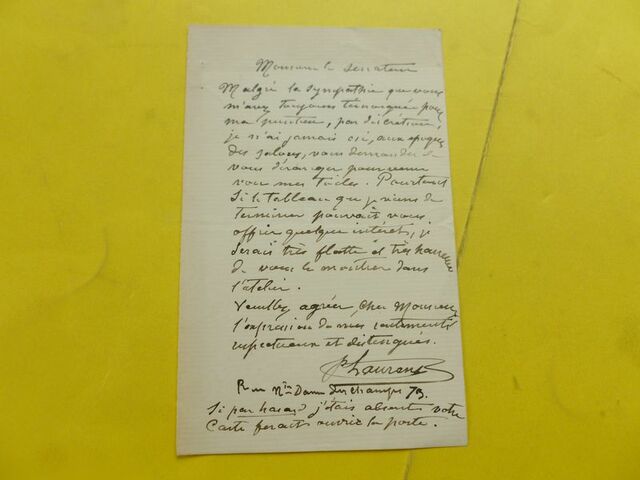 Monsieur le Senateur
Malgré la sympathie que vous
m'avez toujours témoignée pour
ma peinture, par discrétion,
je n'ai jamais osé, aux époques
des salons, vous demander de
vous déranger pour venir
voir mes toiles. Pourtant
Si le tableau que je viens de
terminer pouvait vous
offrir quelque intérêt, je
serais très flatté et très heureux
de vous le montrer dans
l'atelier.
Veuillez, agréer, cher Monsieur,
l'expression de mes sentiments
respectueux et distingués.
JP Laurens
Rue Ntre Dame des champs 73.
Si par hasard j'étais absent, votre
Carte ferait ouvrir la porte.